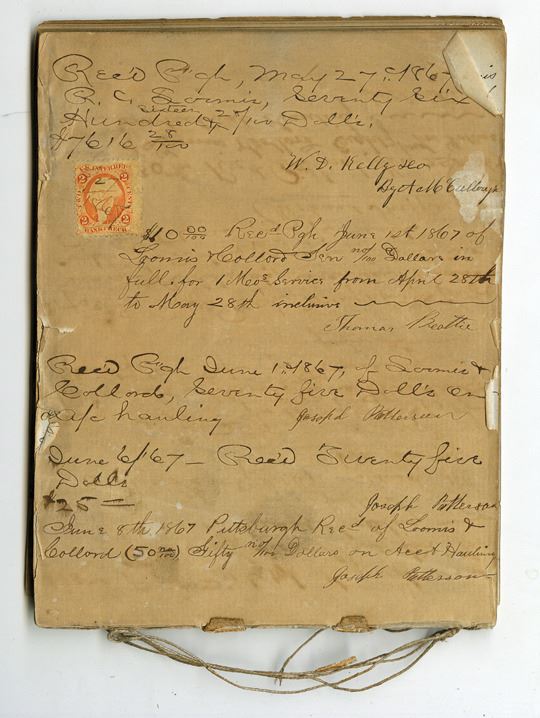 Rec'd P'gh, May 27, 1867,
R. C. Loomis, Seventy Six
Hundred & sixteen 28/100 Doll's.
$7616 28/100
W. D. Kelly &co
By A McCullough
U.S. INTER. REV.
2 2
BANK CHECK
$10 00/100 Recd Pgh June 1st 1867 of
Loomis & Collord Ten no/100 Dollars in
full for 1 Mos Service from April 28th
to May 28th inclusive
Thomas Beattie
Rec'd P'gh June 1, 1867, of Loomis &
Collord, Seventy five Doll's on
a/c hauling Joseph Patterson
June 6/67 - Rec'd Twenty five
Dolls
$25 - Joseph Patterson
June 8th 1867 Pittsburgh Recd of Loomis &
Collord (50 no/100) Fifty no/100 Dollars on Acct Hauling
Joseph Patterson